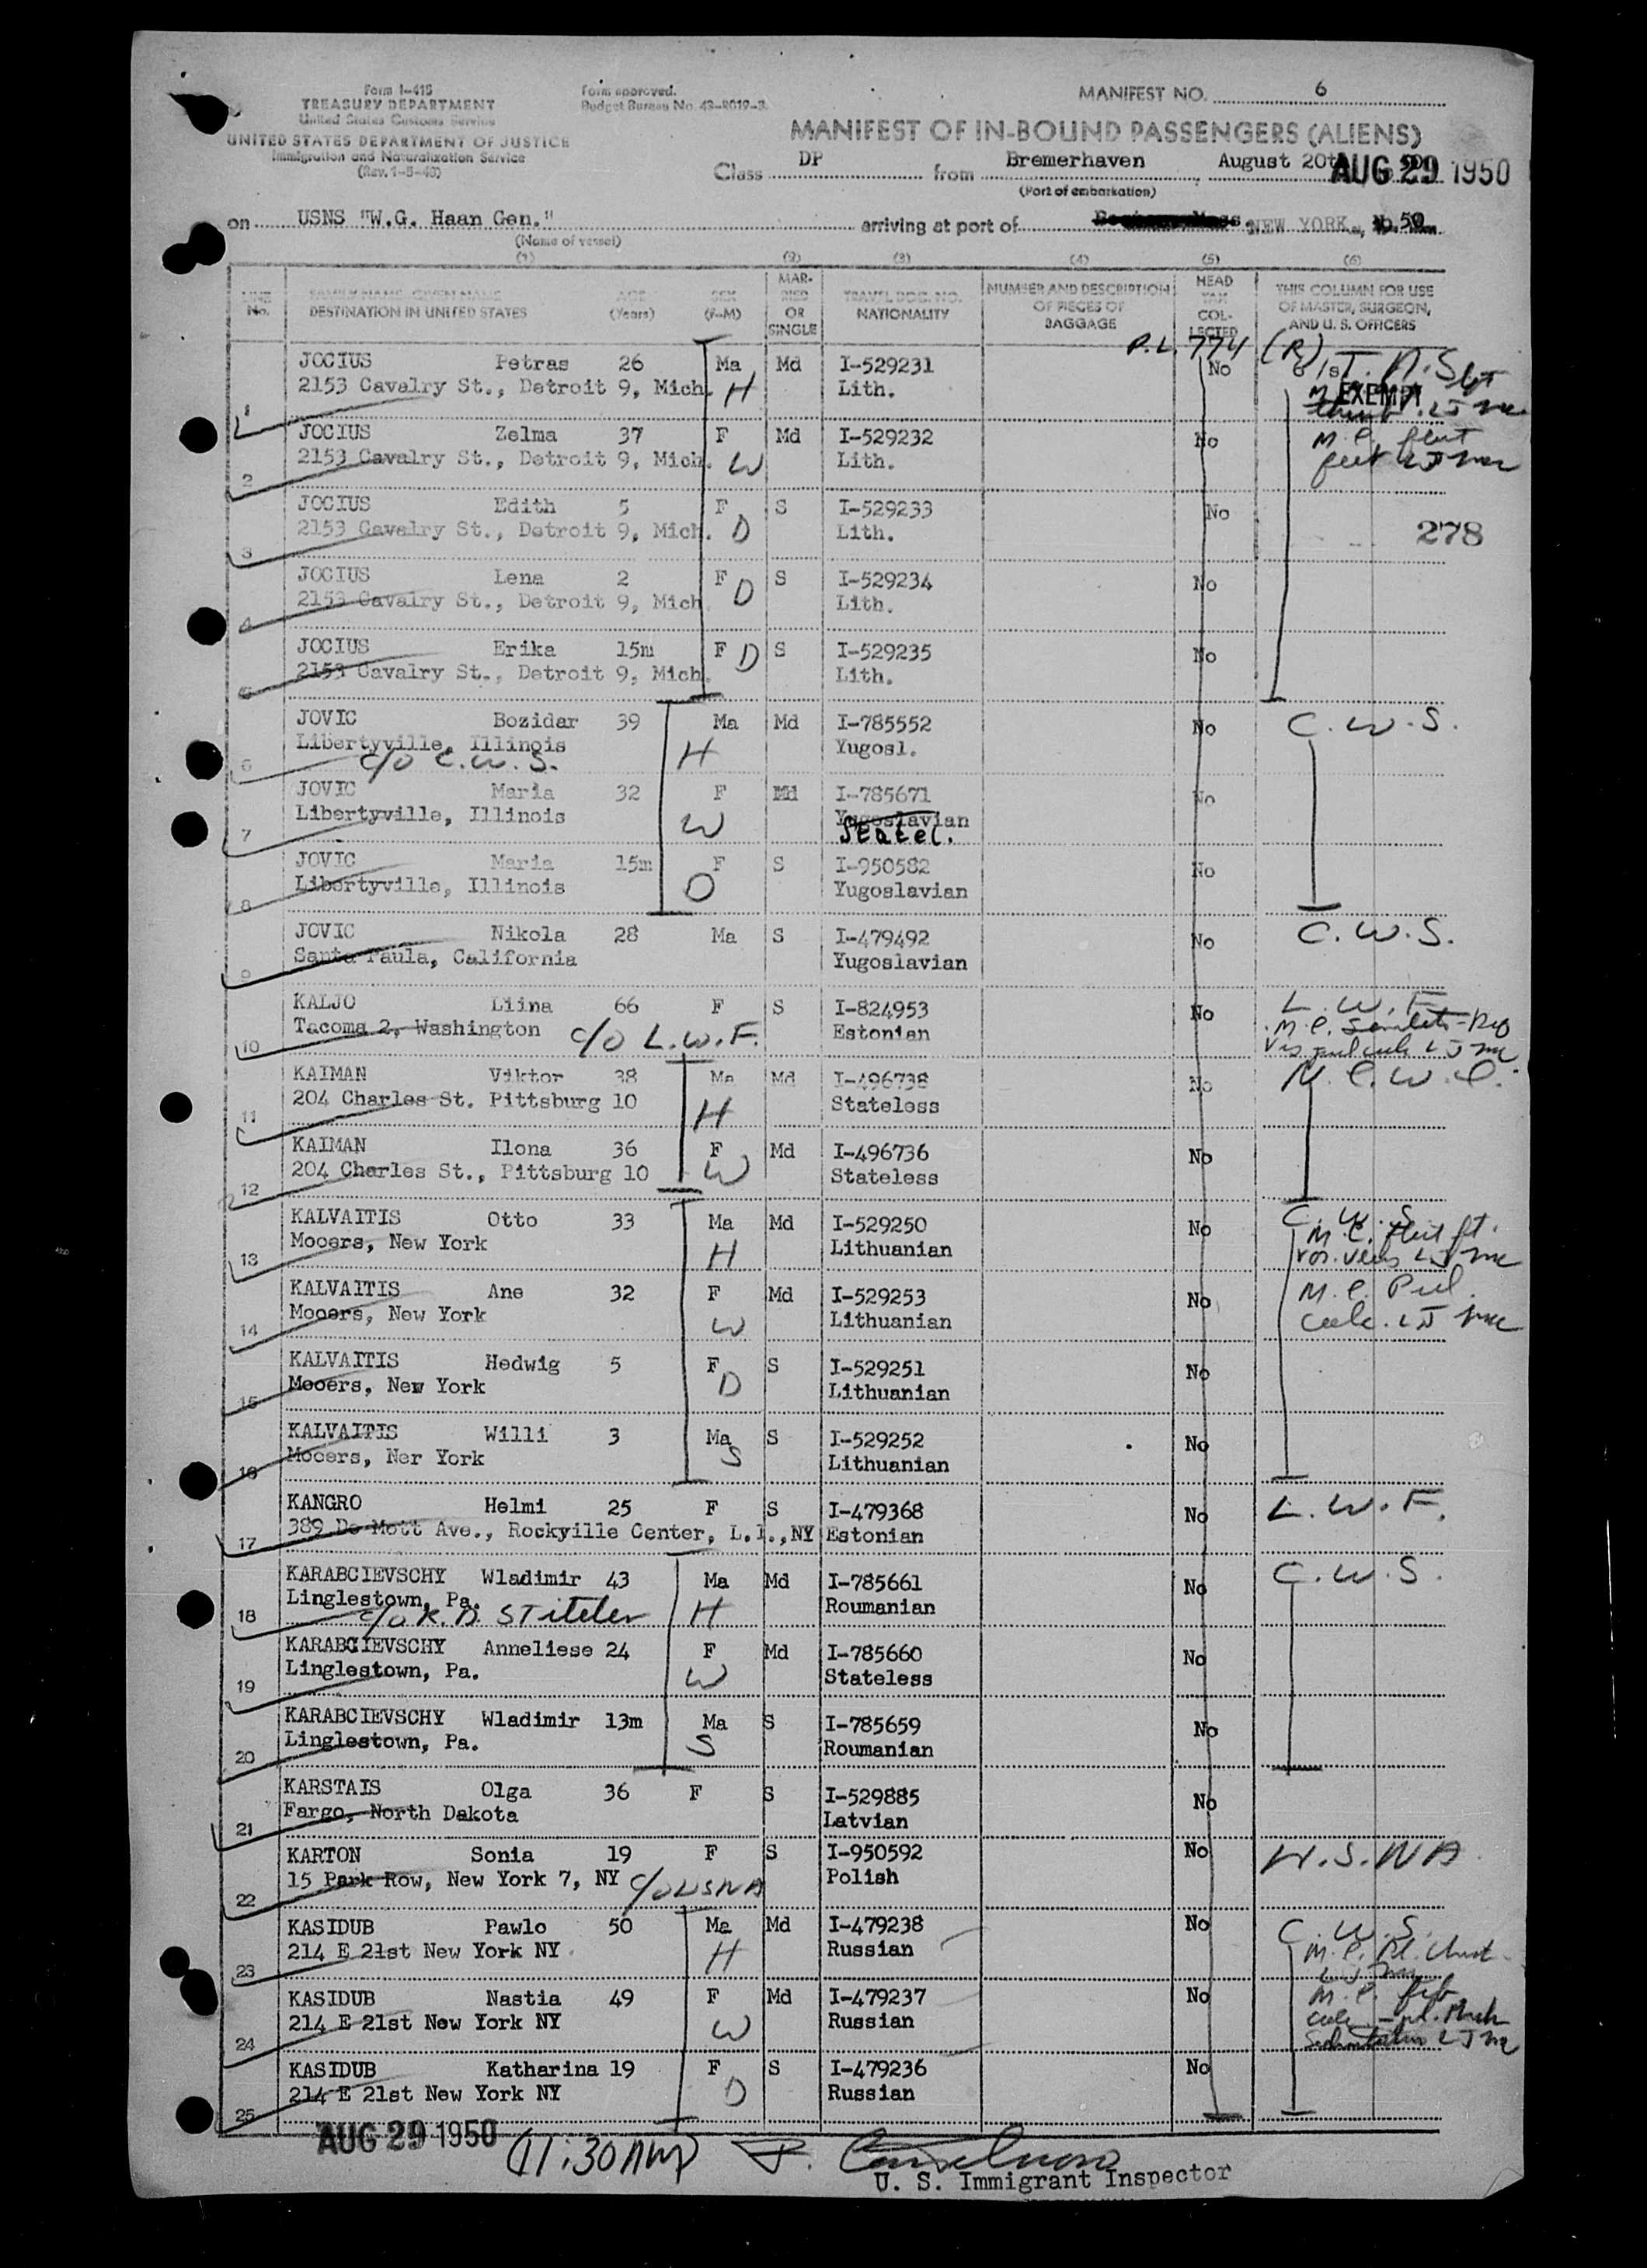 Form I-415
TREASURY DEPARTMENT
United States Customs Service
UNITED STATES DEPARTMENT OF JUSTICE
Immigration and Naturalization Service
(Rev. 1-5-49)
Form approved.
Budget Bureau No. 43-R019-3.
MANIFEST NO. 6
MANIFEST OF IN-BOUND PASSENGERS (ALIENS)
Class DP from Bremerhaven, August 20th AUG 29 1950
(Port of embarkation)
on USNS "W.G. Haan Gen." arriving at port of NEW YORK, 50
(Name of vessel)
(1) (2) (3) (4) (5) (6)
LINE No.
FAMILY NAME—GIVEN NAME
DESTINATION IN UNITED STATES
AGE (Years)
SEX (F-M)
MARRIED OR SINGLE
TRAVEL DOC. NO. NATIONALITY
NUMBER AND DESCRIPTION OF PIECES OF BAGGAGE
HEAD TAX COLLECTED
THIS COLUMN FOR USE OF MASTER, SURGEON, AND U. S. OFFICERS
P.L. 774 (R)
1 JOCIUS Petras 26 Ma Md I-529231 No
2153 Cavalry St., Detroit 9, Mich. H Lith. EXEMPT
2 JOCIUS Zelma 37 F Md I-529232 No M.C. flat
2153 Cavalry St., Detroit 9, Mich. W Lith. feet
3 JOCIUS Edith 5 F S I-529233 No
2153 Cavalry St., Detroit 9, Mich. D Lith. 278
4 JOCIUS Lena 2 F S I-529234 No
2153 Cavalry St., Detroit 9, Mich D Lith.
5 JOCIUS Erika 15m F D S I-529235 No
2153 Cavalry St., Detroit 9, Mich. Lith.
6 JOVIC Bozidar 39 Ma Md I-785552 No C.W.S.
Libertyville, Illinois H Yugosl.
c/o C.W.S.
7 JOVIC Maria 32 F Md I-785671 No
Libertyville, Illinois W Yugoslavian
Statel.
8 JOVIC Maria 15m F S I-950582 No
Libertyville, Illinois D Yugoslavian
9 JOVIC Nikola 28 Ma S I-479492 No C.W.S.
Santa Paula, California Yugoslavian
10 KALJO Liina 66 F S I-824953 No L.W.F.
Tacoma 2, Washington c/o L.W.F. Estonian
11 KAIMAN Viktor 38 Ma Md I-496738 No
204 Charles St. Pittsburg 10 H Stateless
12 KAIMAN Ilona 36 F Md I-496736 No
204 Charles St., Pittsburg 10 W Stateless
13 KALVAITIS Otto 33 Ma Md I-529250 No C.W.S.
Mooers, New York H Lithuanian
14 KALVAITIS Ane 32 F Md I-529253 No
Mooers, New York W Lithuanian
15 KALVAITIS Hedwig 5 F S I-529251 No
Mooers, New York D Lithuanian
16 KALVAITIS Willi 3 Ma S I-529252 No
Mooers, Ner York S Lithuanian
17 KANGRO Helmi 25 F S I-479368 No L.W.F.
389 De Mott Ave., Rockyille Center, L.I.,NY Estonian
18 KARABCIEVSCHY Wladimir 43 Ma Md I-785661 No C.W.S.
Linglestown, Pa. H Roumanian
c/o R.D. Stiteler
19 KARABCIEVSCHY Anneliese 24 F Md I-785660 No
Linglestown, Pa. W Stateless
20 KARABCIEVSCHY Wladimir 13m Ma S I-785659 No
Linglestown, Pa. S Roumanian
21 KARSTAIS Olga 36 F S I-529885 No
Fargo, North Dakota Latvian
22 KARTON Sonia 19 F S I-950592 No
15 Park Row, New York 7, NY c/o USNA Polish
23 KASIDUB Pawlo 50 Ma Md I-479238 No C.W.S.
214 E 21st New York NY H Russian
24 KASIDUB Nastia 49 F Md I-479237 No
214 E 21st New York NY W Russian
25 KASIDUB Katharina 19 F S I-479236 No
214 E 21st New York NY D Russian
AUG 29 1950 (11:30 AM)
U. S. Immigrant Inspector